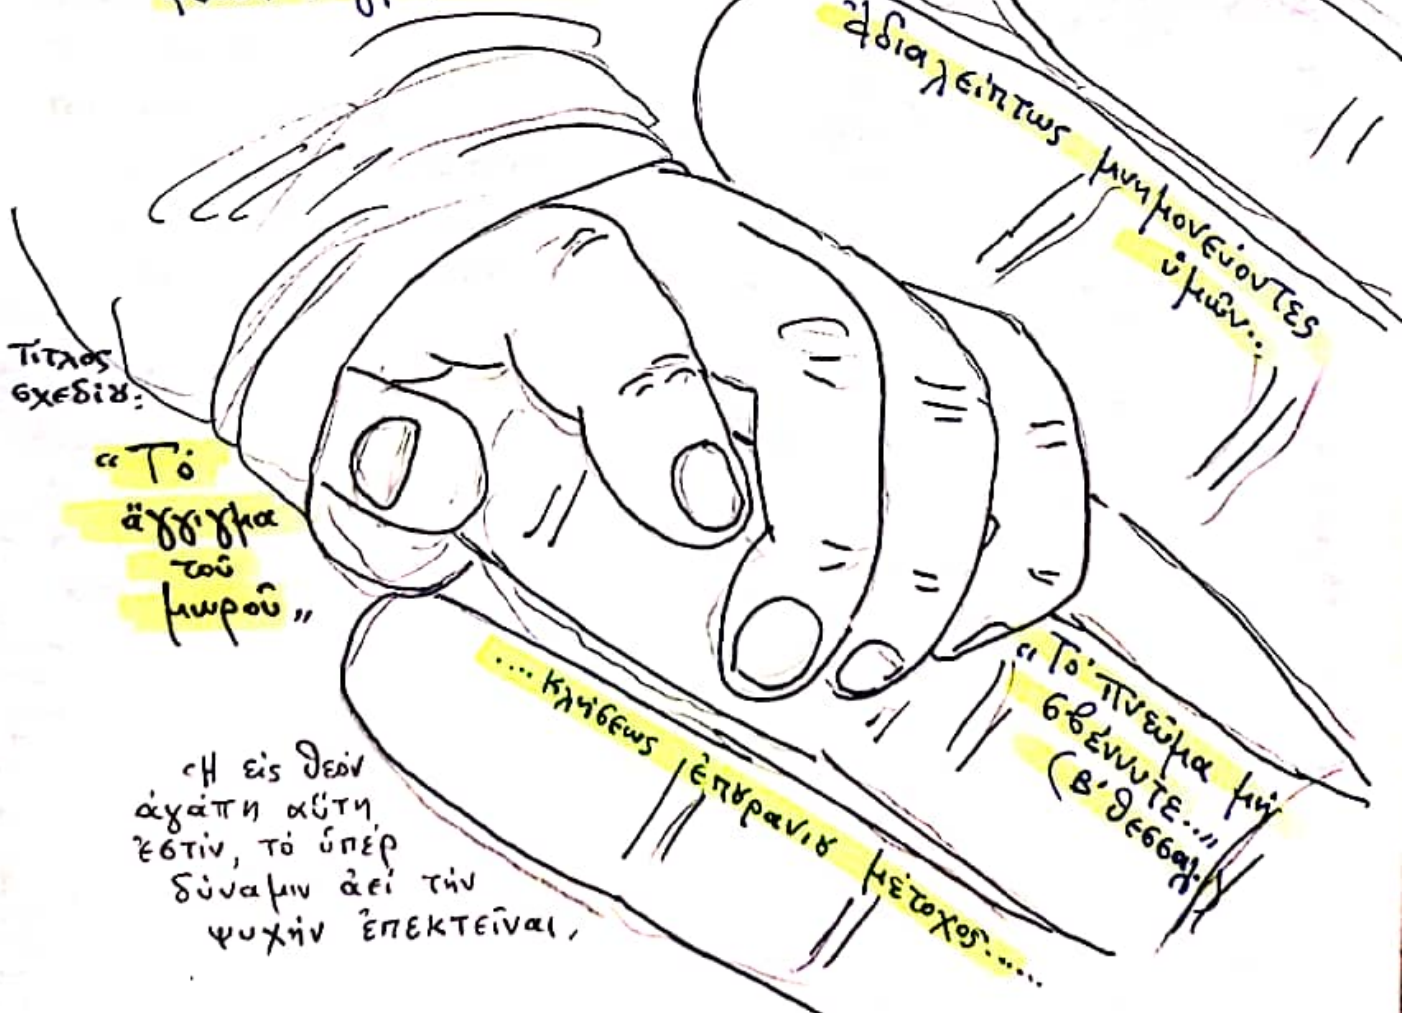 ἀδιαλείπτως μνημονεύοντες
ὑμῶν...
Τίτλος
σχεδίου:
“Τὸ
ἄγγιγμα
τοῦ
μωροῦ„
.... κλήσεως ἐπουρανίου μέτοχος......
“Τὸ πνεῦμα μὴ
σβέννυτε...„
(Β' Θεσσαλ.)
Ἡ εἰς θεόν
ἀγάπη αὕτη
ἐστίν, τὸ ὑπὲρ
δύναμιν ἀεί τὴν
ψυχὴν ἐπεκτεῖναι,